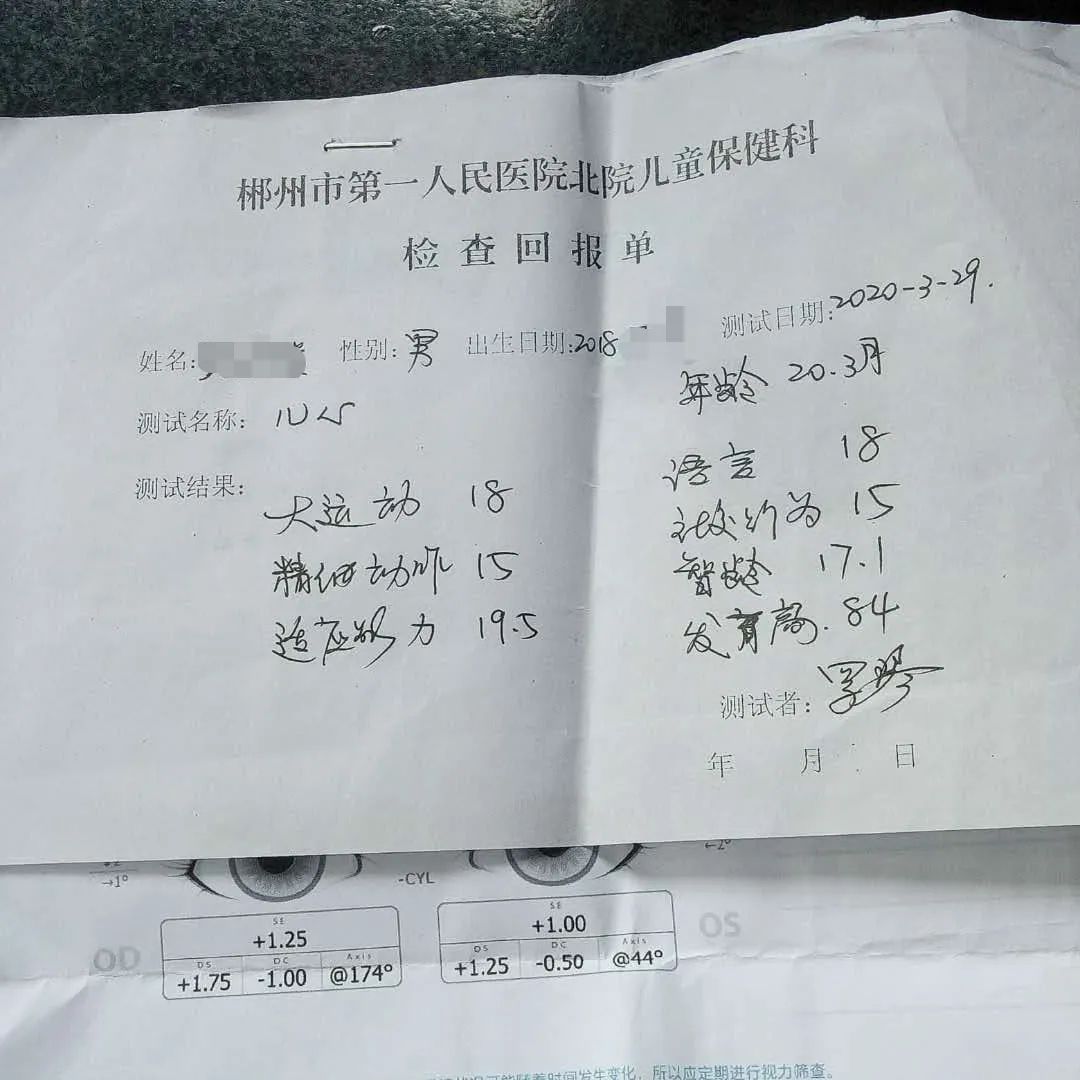 郴州市第一人民医院北院儿童保健科
检查回报单
姓名: 性别: 男 出生日期: 2018 测试日期: 2020-3-29.
测试名称: 儿心 年龄 20.3月
测试结果:
大运动 18 语言 18
精细动作 15 社交行为 15
适应能力 19.5 智龄 17.1
发育商. 84
测试者:
年 月 日
→1° -CYL ←2°
OD SE +1.25 SE +1.00 OS
DS +1.75 DC -1.00 Axis @174° DS +1.25 DC -0.50 Axis @44°
随着时间发生变化，所以应定期进行视力筛查。